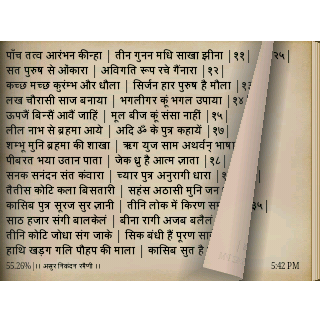 पाँच तत्व आरंभन कीन्हा | तीन गुनन मधि साखा झीना |११|
सत पुरुष से ओंकारा | अविगति रूप रचे गैंनारा |१२|
कच्छ मच्छ कुरंम्भ और धौला | सिर्जन हार पुरुष है मौला |
लख चौरासी साज बनाया | भगलीगर कूं भगल उपाया |१४
ऊपजैं बिन्सैं आवैं जाहिं | मूल बीज कूं संसा नाहीं |१५|
लील नाभ से ब्रहमा आये | अदि ॐ के पुत्र कहायें |१७|
शम्भू मुनि ब्रहमा की शाखा | ऋग युज साम अथर्वन् भाषा
पीबरत भया उतान पाता | जेक ध्रु है आत्म ज्ञाता |१८|
सनक सनंदन संत कंवारा | च्यार पुत्र अनुरागी धारा |
तैतीस कोटि कला बिसतारी | सहंस अठासी मुनि जन
कासिब पुत्र सूरज सुर ज्ञानी | तीनि लोक में किरण सम
साठ हजार संगी बालकेलं | बीना रागी अजब बलेलं
तीनि कोटि जोधा संग जाके | सिक बंधी हैं पूरण सा
हाथि खड़ग गलि पौहप की माला | कासिब सुत है
55.26% |।। असुर निकंदन रमैणी ।। 5:42 PM